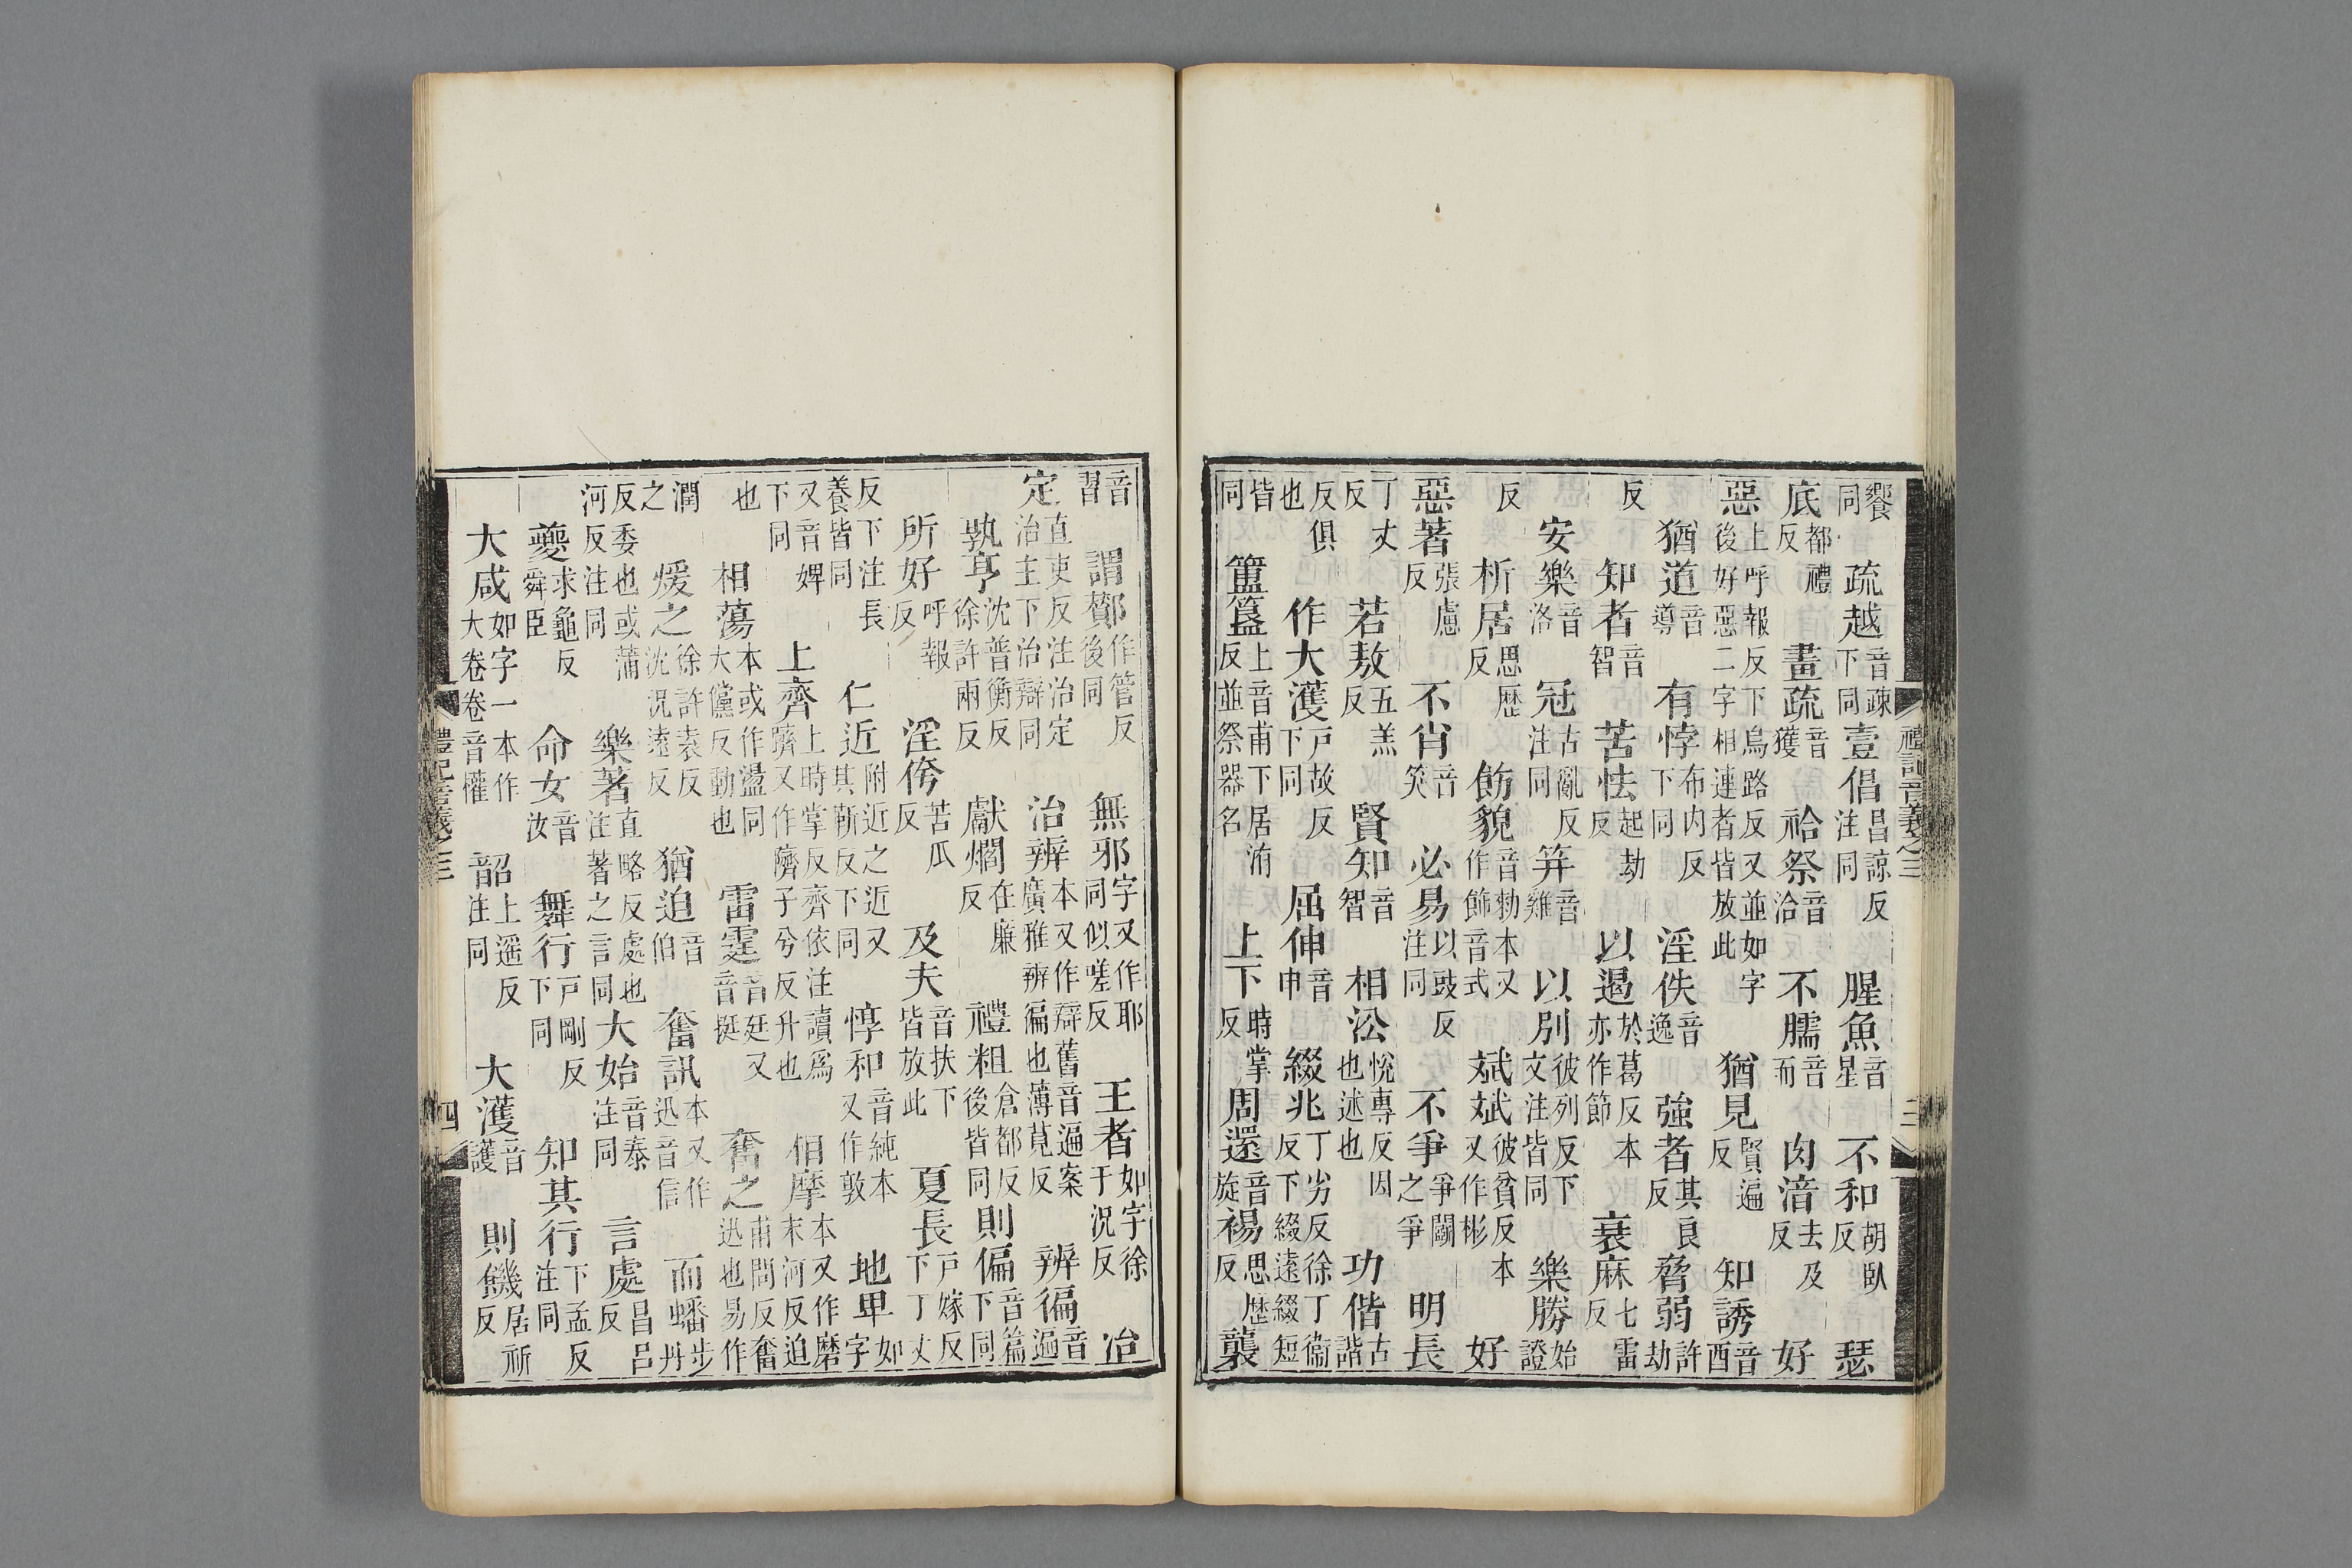 饗同　疏越音疎下同　壹倡昌諒反注同　腥魚音星　不和胡臥反　瑟
底都禮反　畫疏音獲　祫祭音洽　不臑音而　肉湆去及反　好
惡上呼報反下烏路反又並如字後好惡二字相連者皆放此　猶見賢遍反　知誘音酉
猶道音導　有悖布内反下同　淫佚音逸　強者其良反　脅弱許劫
反　知者音智　苦怯起劫反　以遏於葛反本亦作節　衰麻七雷反
安樂音洛　冠古亂反注同　笄音雞　以別彼列反下文注皆同　樂勝始證
反　析居思歷反　飭貌音勑本又作飾音式　斌斌彼貧反本又作彬　好
惡著張慮反　不肖音笑　必易以豉反注同　不爭爭鬭之爭　明長
丁丈反　若敖五羔反　賢知音智　相沿悅專反因也述也　功偕古諧
反俱也　作大濩戸故反下同　屈伸音申　綴兆丁劣反徐丁衞反下綴遠綴短
皆同　簠簋上音甫下居洧反並祭器名　上下時掌反　周還音旋　裼思歷反　襲
禮記音義之三　三
音習　謂酇作管反後同　無邪字又作耶同似嗟反　王者如字徐于況反　治
定直吏反注治定治主下治辯同　治辨本又作辯舊音遍案廣雅辨徧也薄莧反　辨徧音遍
孰亨沈普衡反徐許兩反　獻爓在廉反　禮粗倉都反後皆同　則偏音篇下同
所好呼報反　淫侉苦瓜反　及夫音扶下皆放此　夏長戸嫁反下丁丈
反下注長養皆同　仁近附近之近又其靳反下同　惇和音純本又作敦　地卑如字
又音婢下同　上齊上時掌反齊依注讀爲躋又作隮子兮反升也　相摩本又作磨末河反迫
也　相蕩本或作盪同大儻反動也　雷霆音廷又音挺　奮之甫問反奮迅也易作
潤之　煖之徐許袁反沈況遠反　猶迫音伯　奮訊本又作迅音信　而蟠步丹
反委也或蒲河反注同　樂著直略反處也注著之言同　大始音泰注同　言處昌呂反
夔求龜反舜臣　命女音汝　舞行戸剛反下同　知其行下孟反注同
大咸如字一本作大卷卷音權　韶上遥反注同　大濩音護　則饑居祈反
禮記音義之三　四